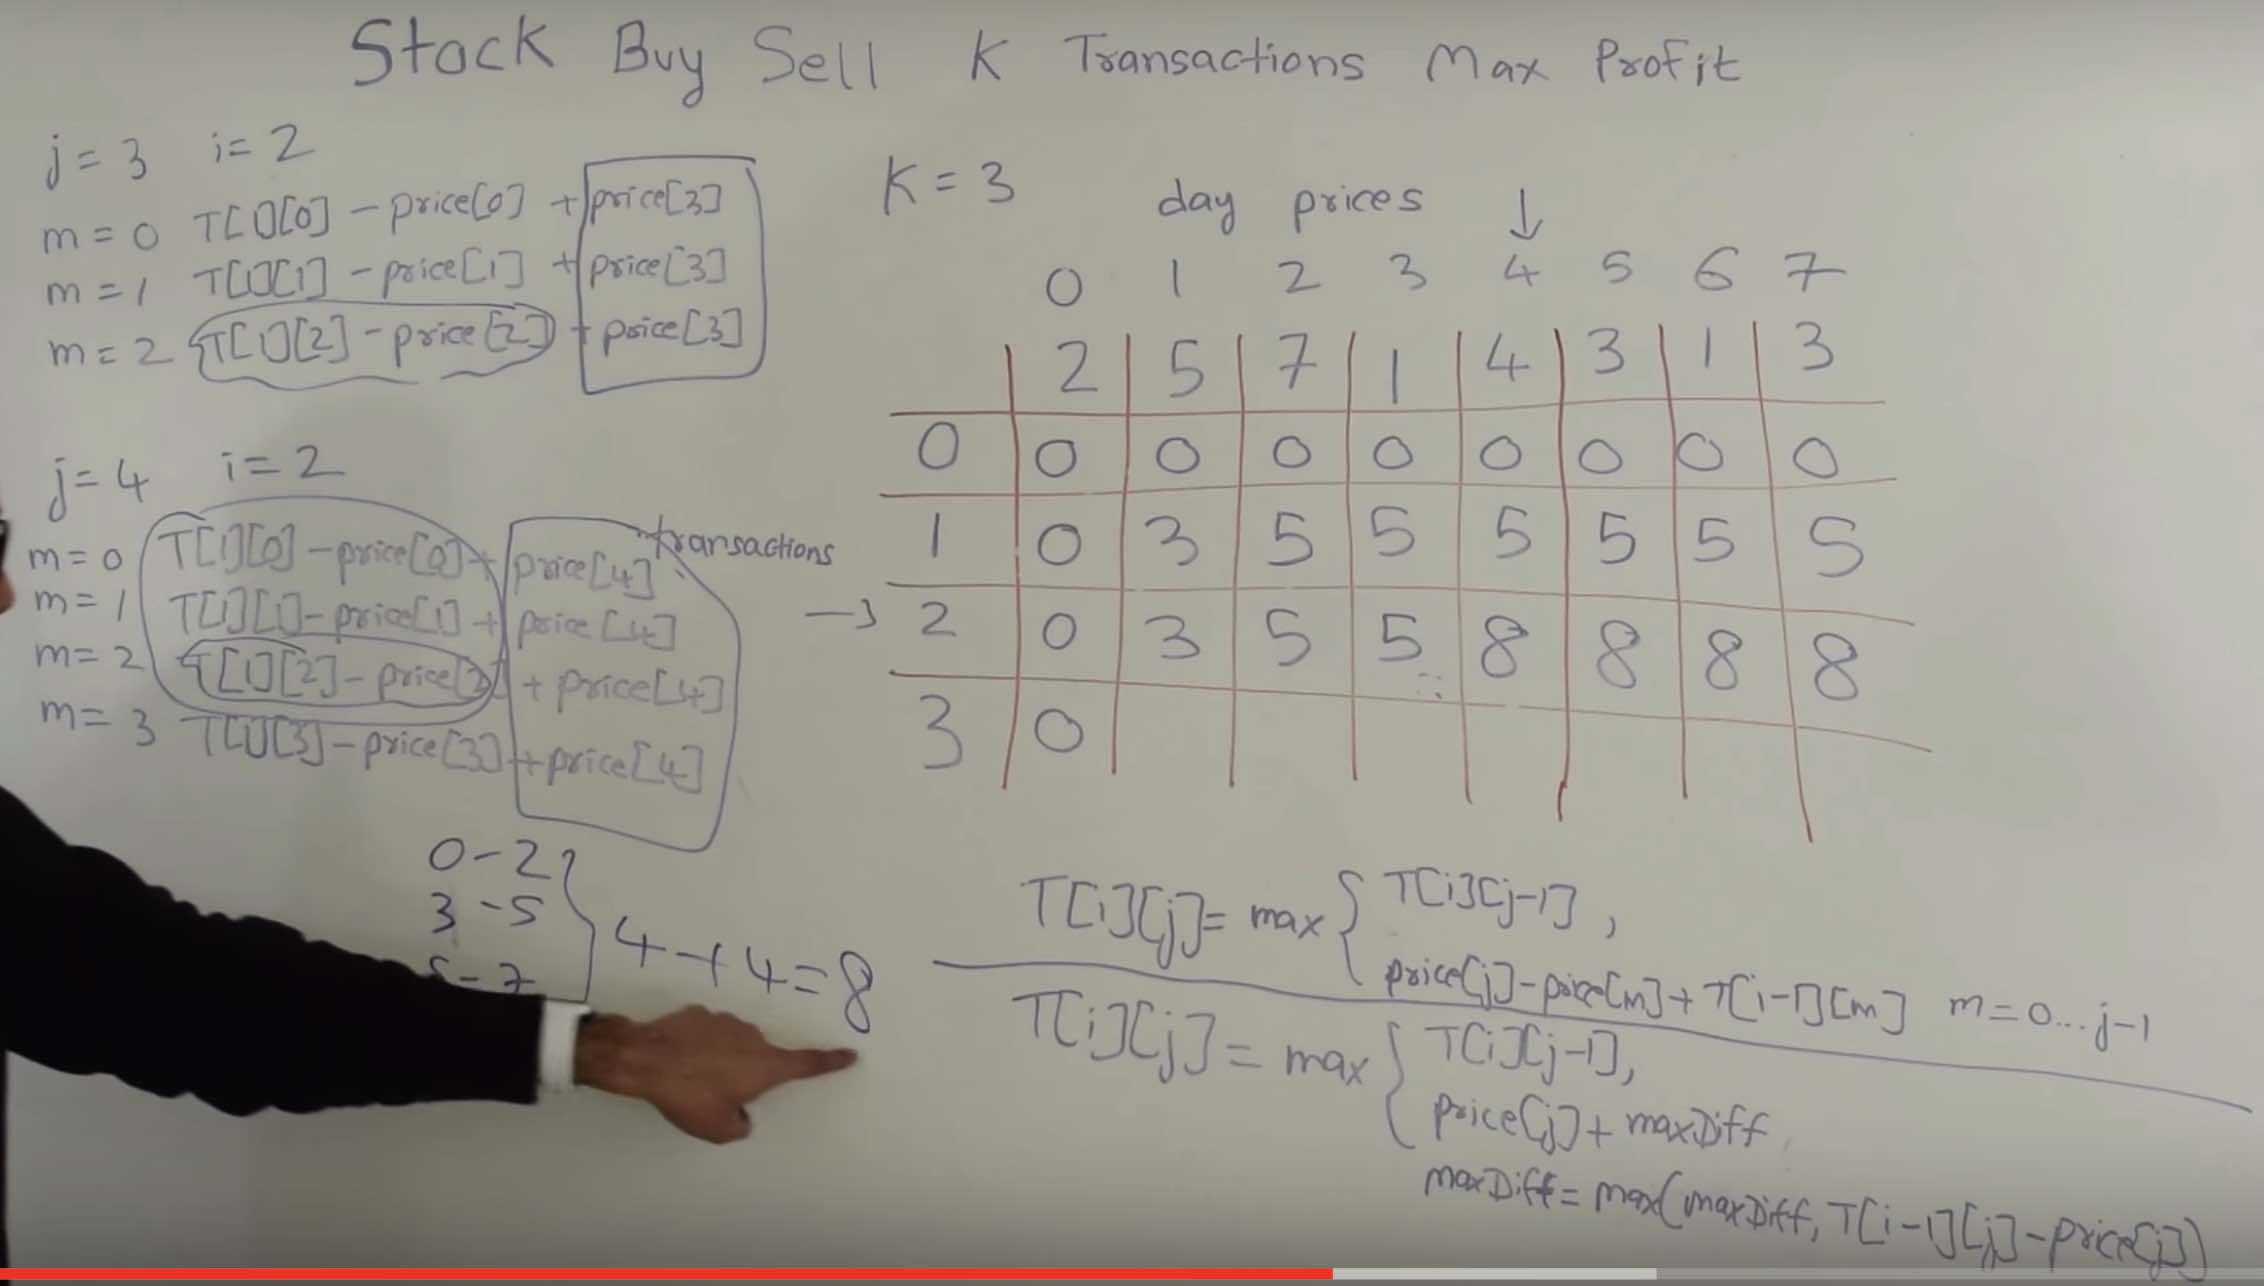 Stock Buy Sell K Transactions Max Profit
j = 3 i = 2
m = 0 T[1][0] - price[0] + price[3]
m = 1 T[1][1] - price[1] + price[3]
m = 2 T[1][2] - price[2] + price[3]
j = 4 i = 2
m = 0 T[1][0] - price[0] + price[4]
m = 1 T[1][1] - price[1] + price[4]
m = 2 T[1][2] - price[2] + price[4]
m = 3 T[1][3] - price[3] + price[4]
0 - 2
3 - 5
- 7
4 + 4 = 8
K = 3 day prices ↓
0 1 2 3 4 5 6 7
2 5 7 1 4 3 1 3
0 0 0 0 0 0 0 0 0
transactions
1 0 3 5 5 5 5 5 5
→ 2 0 3 5 5 8 8 8 8
3 0
T[i][j] = max { T[i][j-1],
price[j] - price[m] + T[i-1][m] m = 0... j-1
T[i][j] = max { T[i][j-1],
price[j] + maxDiff
maxDiff = max(maxDiff, T[i-1][j] - price[j])